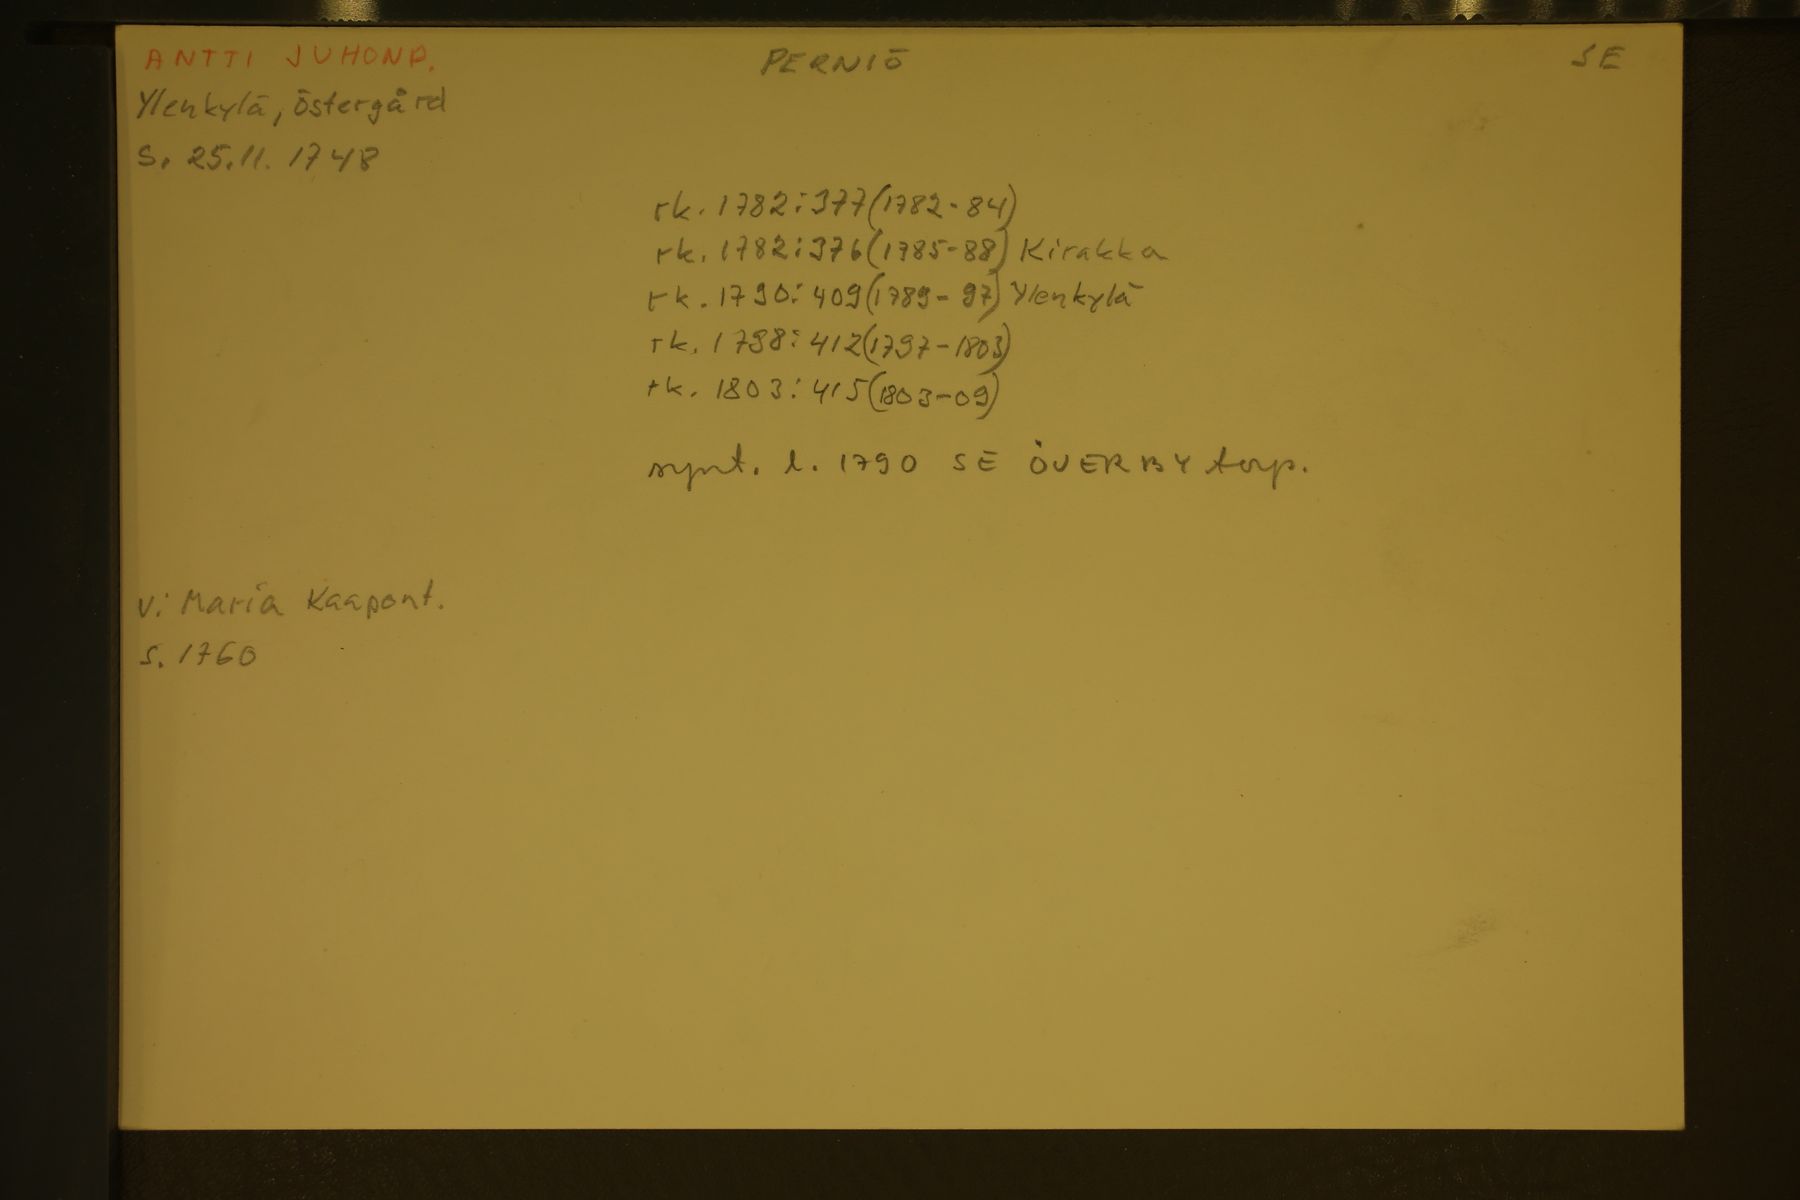 ANTTI JUHONP. PERNIÖ SE
Ylenkylä, Östergård
S. 25.11. 1748
rk. 1782:377(1782-84)
rk. 1782:376(1785-88) Kirakka
rk. 1790:409(1789-97) Ylenkylä
rk. 1798:412(1797-1803)
rk. 1803:415(1803-09)
synt. l. 1790 SE ÖVERBY torp.
v: Maria Kaapont.
s. 1760